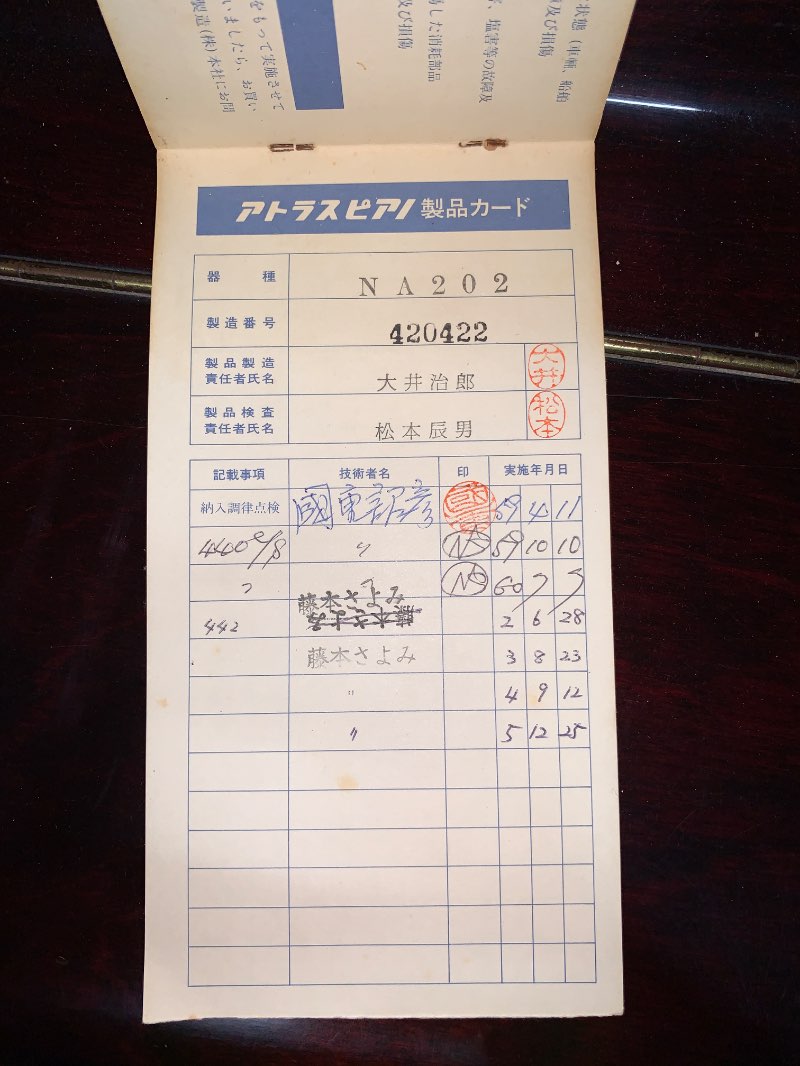 状態(車輌、船舶
及び損傷
塩害等の故障及
した消耗部品
及び損傷
をもって実施させて
いましたら、お買い
製造(株)本社にお問
アトラスピアノ 製品カード
器種 NA202
製造番号 420422
製品製造 責任者氏名 大井治郎 大井
製品検査 責任者氏名 松本辰男 松本
記載事項 技術者名 印 実施年月日
納入調律点検 59 4 11
440 〃 59 10 10
〃 60 7
442 藤本さよみ 2 6 28
藤本さよみ 3 8 23
〃 4 9 12
〃 5 12 25